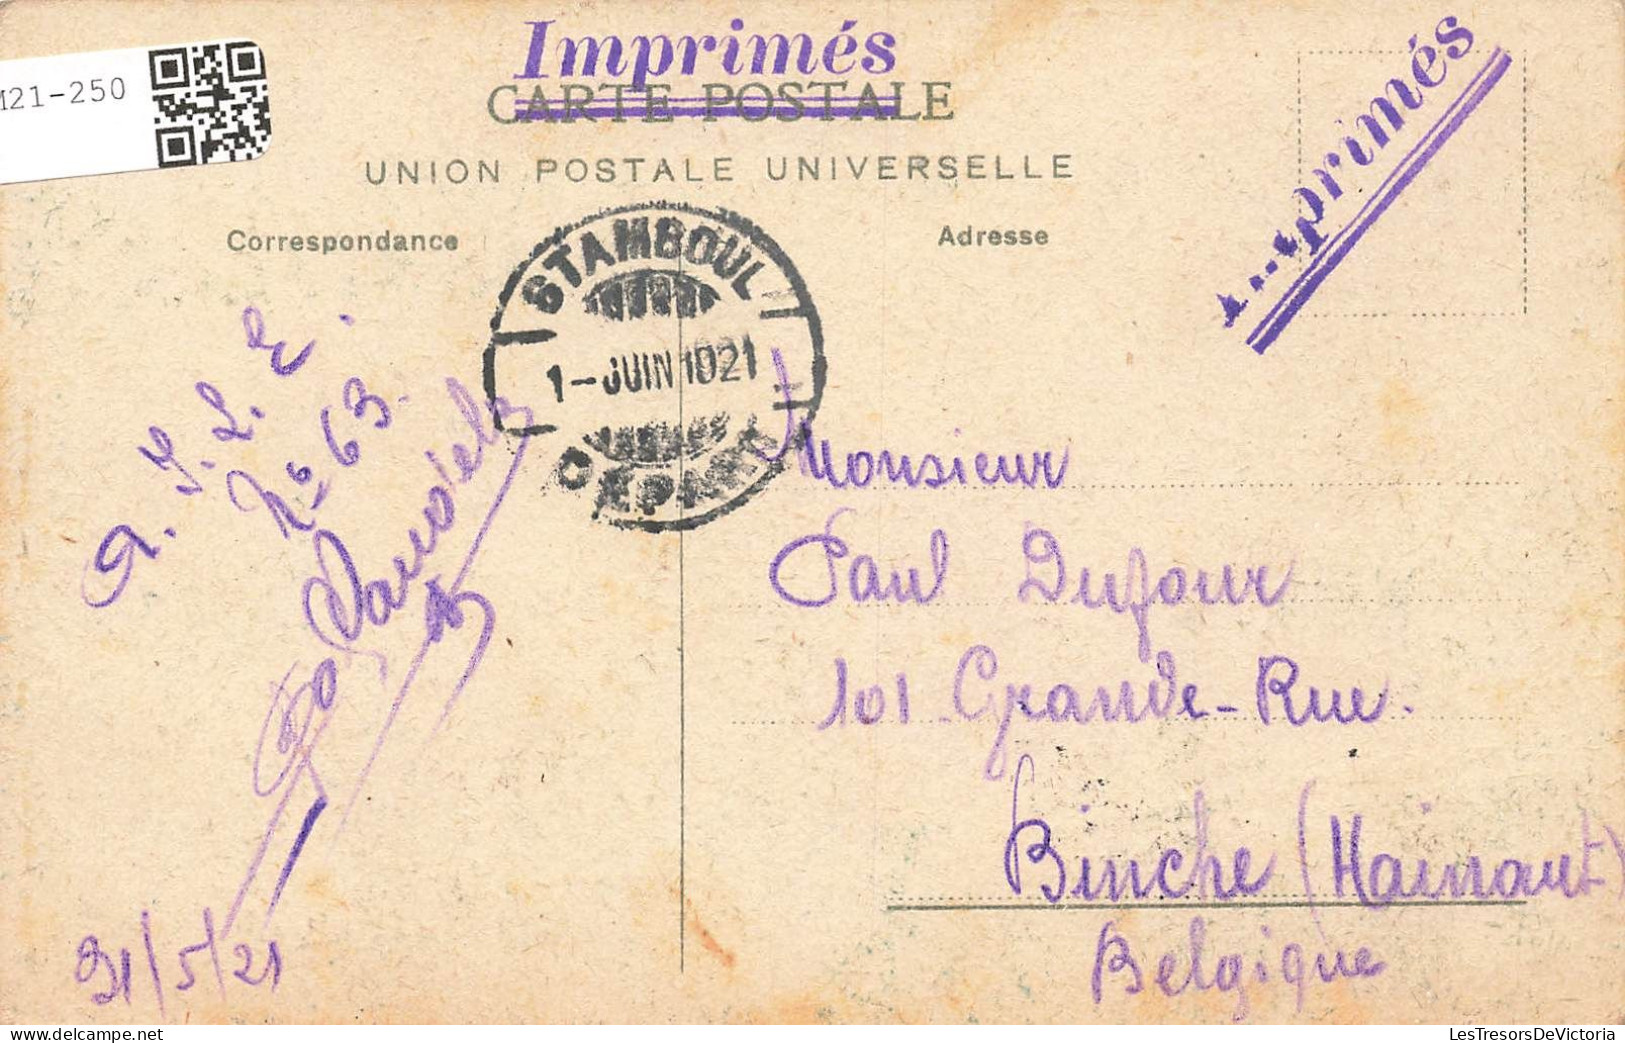 M21-250
Imprimés
CARTE POSTALE
Imprimés
UNION POSTALE UNIVERSELLE
Correspondance
Adresse
STAMBOUL
1-JUIN 1921
DEPART
A. I. L. E.
No 63.
31/5/21
Monsieur
Paul Dufour
101 Grande-Rue.
Binche (Hainaut)
Belgique
LesTresorsDeVictoria